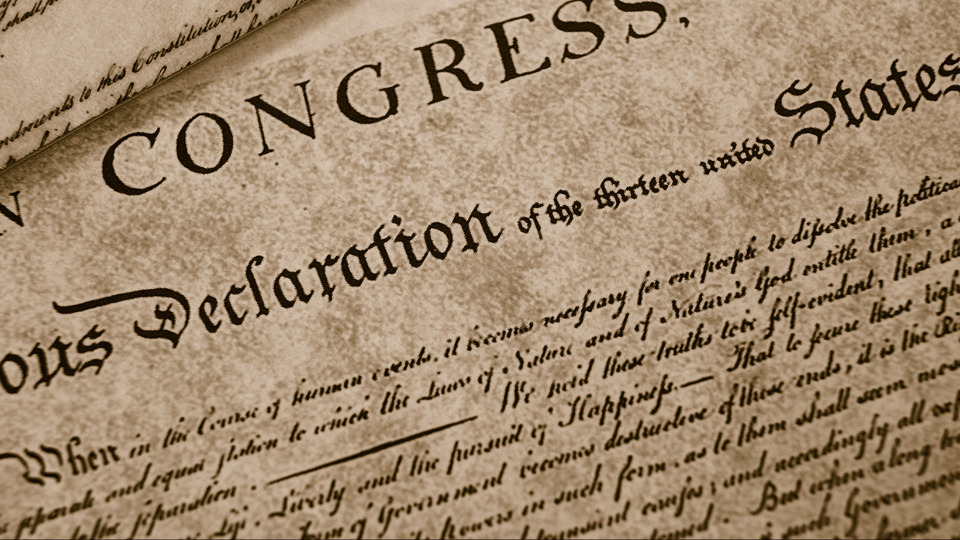 ndments to this Constitution, or,
N CONGRESS,
ous Declaration of the thirteen united States
When in the Course of human events, it becomes neceſsary for one people to diſsolve the political
separate and equal ſtation to which the Laws of Nature and of Nature's God entitle them, a
the ſeparation. ——— We hold these truths to be ſelf-evident, that all
Liberty and the pursuit of Happineſs.— That to ſecure these righ
Form of Government becomes destructive of these ends, it is the Ri
powers in such form, as to them shall seem mos
transient cauſes; and accordingly all exp
But when a long
such Government